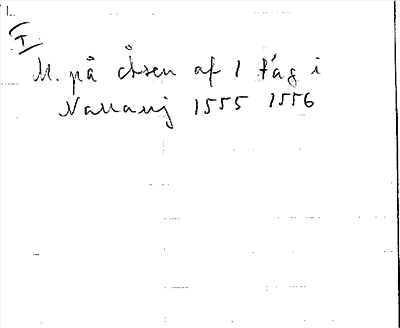 I
M. på Åsen af 1 tág i
Nauarj 1555 1556